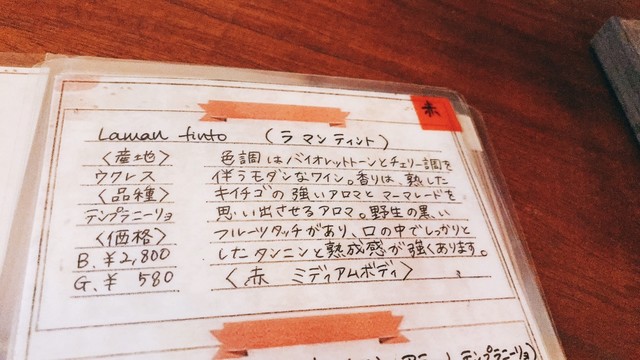 赤
Laman tinto (ラマンティント)
〈産地〉
ウクレス
〈品種〉
テンプラニーリョ
〈価格〉
B.¥2,800
G.¥ 580
色調はバイオレットトーンとチェリー調を
伴うモダンなワイン。香りは、熟した
キイチゴの強いアロマとマーマレードを
思い出させるアロマ。野生の黒い
フルーツタッチがあり、口の中でしっかりと
したタンニンと熟成感が強くあります。
〈赤 ミディアムボディ〉
テンプラニーリョ)